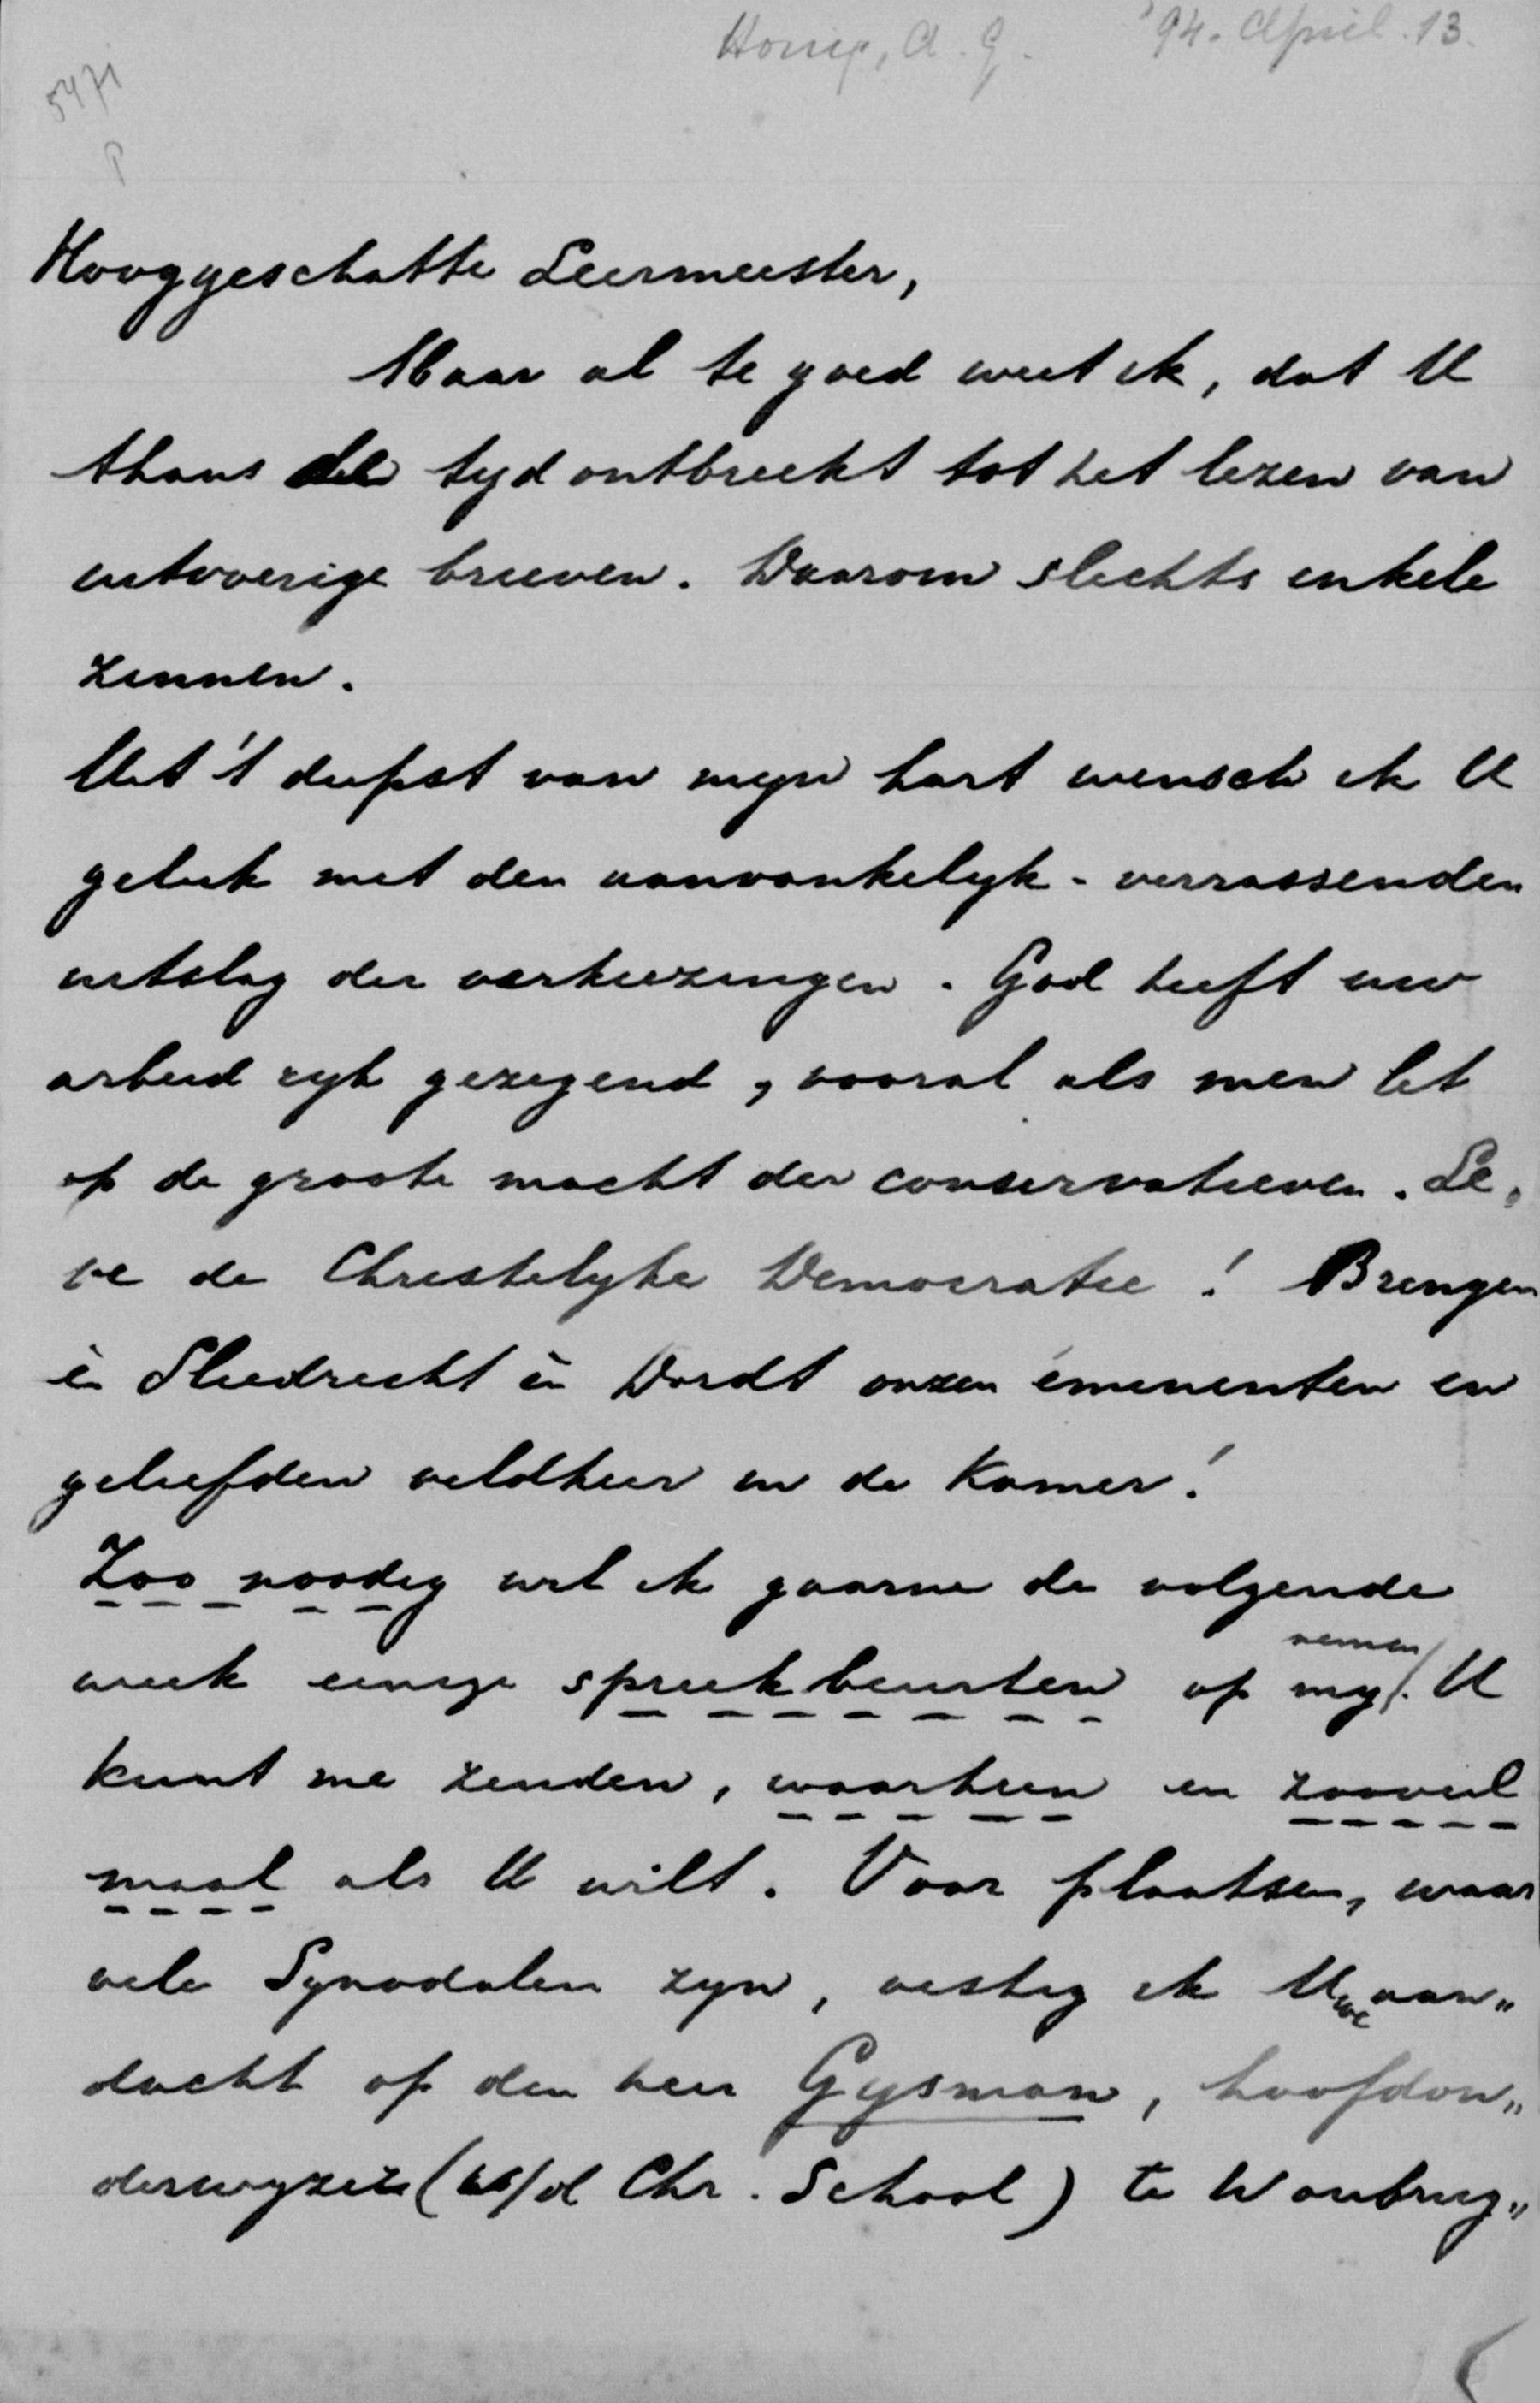 Honig, A. G. '94. April. 13.
5471
P
Hooggeschatte Leermeester,
Maar al te goed weet ik, dat U
thans de tyd ontbreekt tot het lezen van
uitvoerige brieven. Daarom slechts enkele
zinnen.
Uit 't diepst van myn hart wensch ik U
geluk met den aanvankelyk-verrassenden
uitslag der verkiezingen. God heeft uw
arbeid ryk gezegend, vooral als men let
op de groote macht der conservatieven. Le„
ve de Christelyke Democratie! Brengen
èn Sliedrecht èn Dordt onzen éminenten en
geliefden veldheer in de Kamer!
Zoo noodig wil ik gaarne de volgende
week eenige spreekbeurten op my nemen. U
kunt me zenden, waarheen en zooveel
maal als U wilt. Voor plaatsen, waar
vele Synodalen zyn, vestig ik Uwe aan„
dacht op den heer Gysman, hoofdon„
derwyzer (a/d Chr. School) te Woubrug„